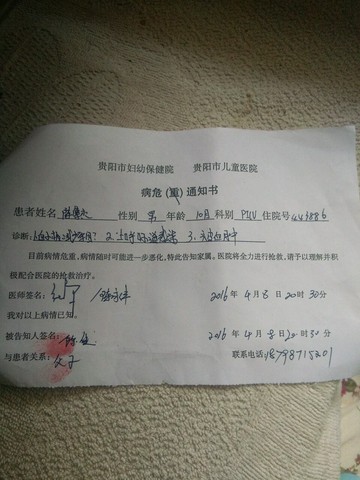 贵阳市妇幼保健院 贵阳市儿童医院
病危(重)通知书
患者姓名 性别 男 年龄 10月 科别 PICU 住院号 443886
诊断: 1. 2. 上呼吸道感染 3.
目前病情危重,病情随时可能进一步恶化,特此告知家属。医院将全力进行抢救,请予以理解并积
极配合医院的抢救治疗。
医师签名: 2016 年 4 月 8 日 20 时 30 分
我对以上病情已知。
被告知人签名: 2016 年 4 月 8 日 20 时 30 分
与患者关系: 父子 联系电话: 18798715201